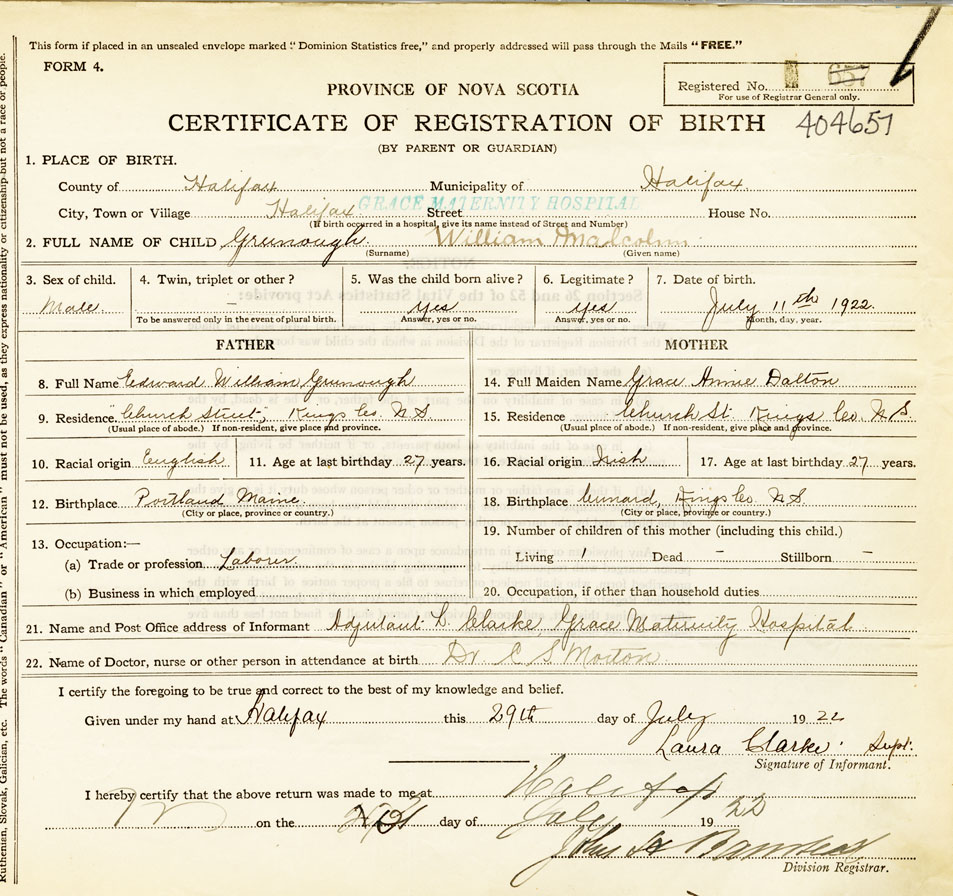 This form if placed in an unsealed envelope marked "Dominion Statistics free," and properly addressed will pass through the Mails "FREE."
FORM 4.
Registered No. 657
For use of Registrar General only.
PROVINCE OF NOVA SCOTIA
CERTIFICATE OF REGISTRATION OF BIRTH 404657
(BY PARENT OR GUARDIAN)
1. PLACE OF BIRTH.
County of Halifax Municipality of Halifax
GRACE MATERNITY HOSPITAL
City, Town or Village Halifax Street House No.
(If birth occurred in a hospital, give its name instead of Street and Number)
2. FULL NAME OF CHILD Greenough William Malcolm
(Surname) (Given name)
3. Sex of child. 4. Twin, triplet or other? 5. Was the child born alive? 6. Legitimate? 7. Date of birth.
Male. – Yes Yes July 11th 1922.
To be answered only in the event of plural birth. Answer, yes or no. Answer, yes or no. Month, day, year.
FATHER MOTHER
8. Full Name Edward William Greenough 14. Full Maiden Name Grace Annie Dalton
9. Residence Church Street, Kings Co. N S 15. Residence Church St Kings Co. N.S.
(Usual place of abode.) If non-resident, give place and province. (Usual place of abode.) If non-resident, give place and province.
10. Racial origin English 11. Age at last birthday 27 years. 16. Racial origin Irish 17. Age at last birthday 27 years.
12. Birthplace Portland Maine 18. Birthplace Kings Co N S
(City or place, province or country.) (City or place, province or country.)
13. Occupation:— 19. Number of children of this mother (including this child.)
(a) Trade or profession Laborer. Living 1 Dead – Stillborn –
(b) Business in which employed 20. Occupation, if other than household duties
21. Name and Post Office address of Informant Adjutant L. Clarke, Grace Maternity Hospital
22. Name of Doctor, nurse or other person in attendance at birth Dr. C S Morton
I certify the foregoing to be true and correct to the best of my knowledge and belief.
Given under my hand at Halifax this 29th day of July 1922
Laura Clarke. Supt.
Signature of Informant.
I hereby certify that the above return was made to me at Halifax
on the day of July 1922
John
Division Registrar.
Ruthenian, Slovak, Galician, etc. The words "Canadian" or "American" must not be used, as they express nationality or citizenship but not a race or people.